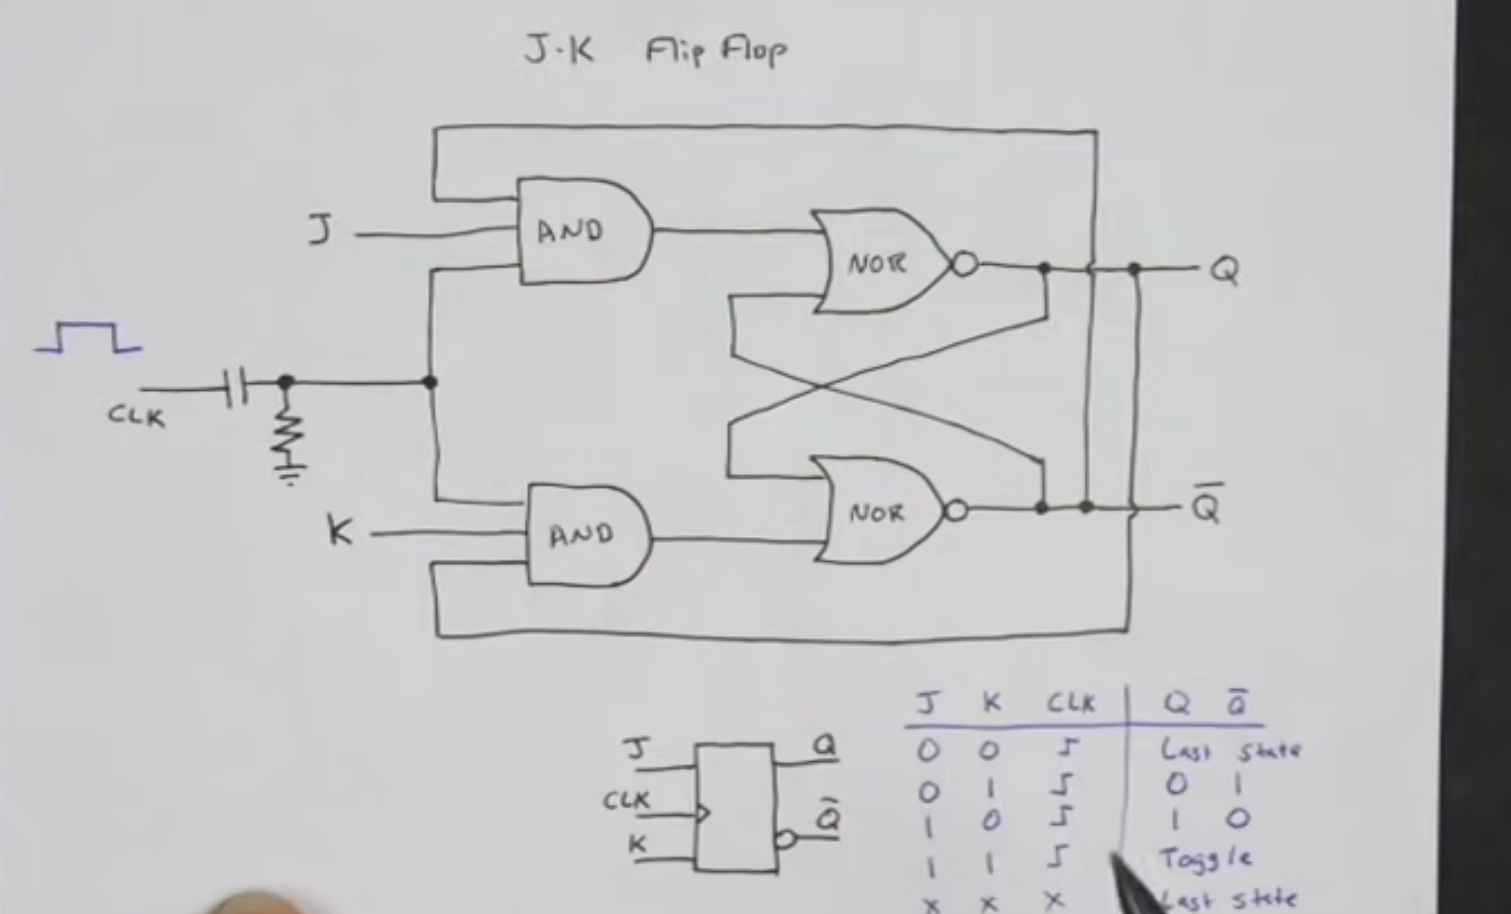 J-K Flip Flop
J
AND
NOR
Q
CLK
K
AND
NOR
Q̅
J
CLK
K
Q
Q̅
J K CLK Q Q̅
0 0 Last State
0 1 0 1
1 0 1 0
1 1 Toggle
X X X Last State